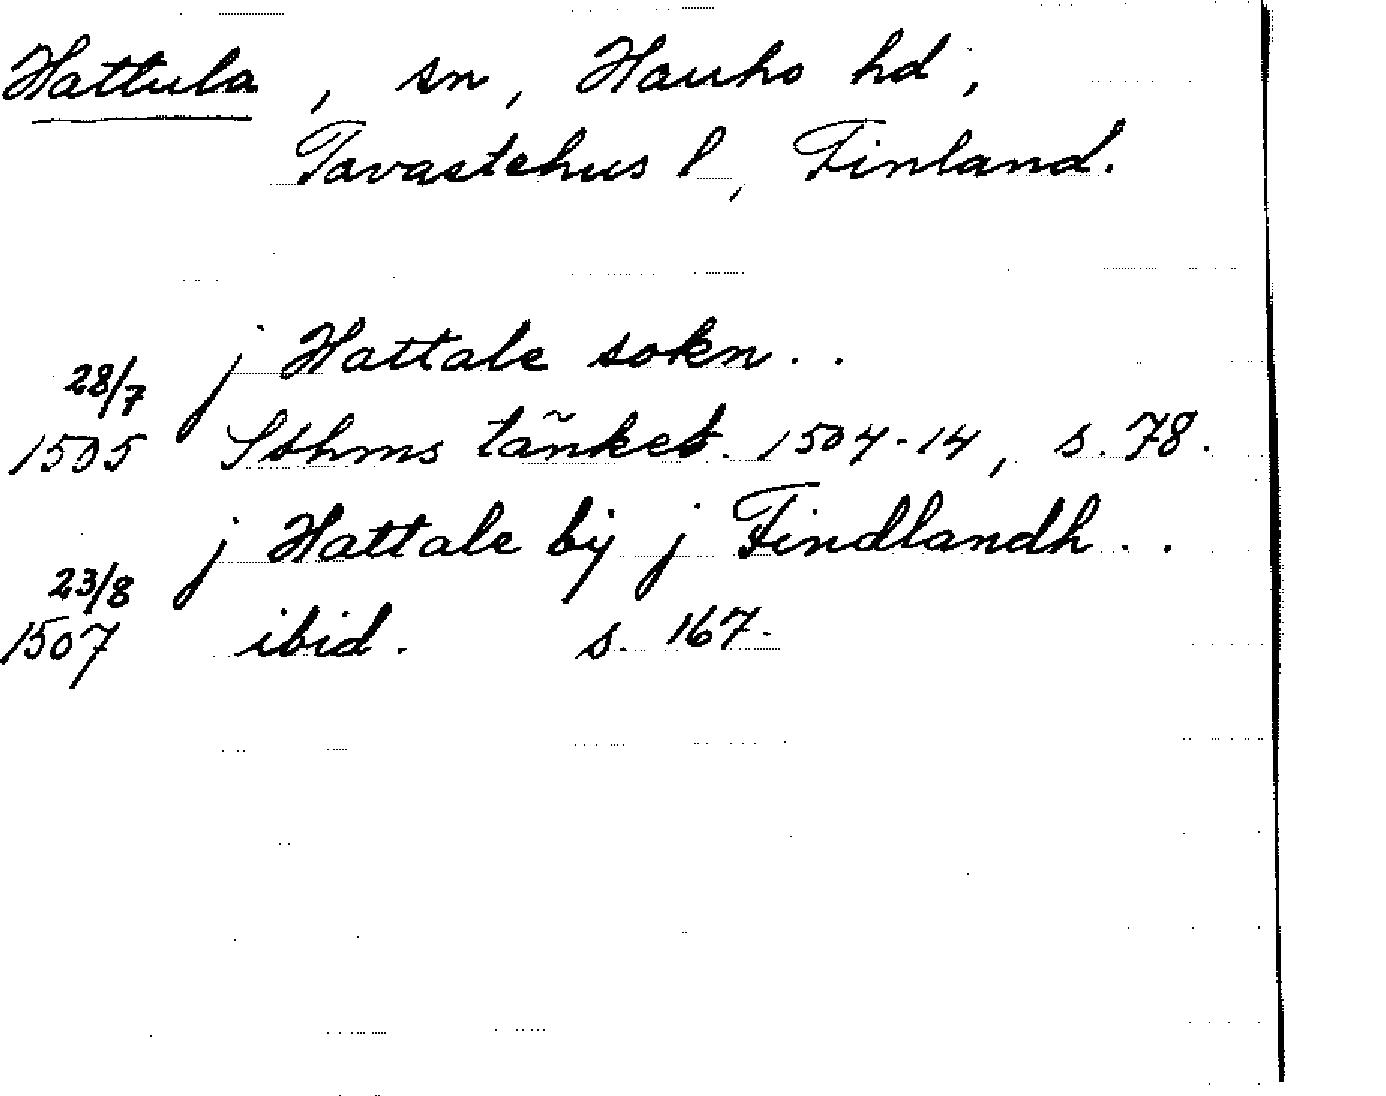 Hattula, sn, Hauho hd,
Tavastehus l, Finland.
j Hattale sokn..
28/7
1505 Sthms tänkeb. 1504-14, s. 78.
j Hattale bij j Findlandh..
23/8
1507 ibid. s. 167.